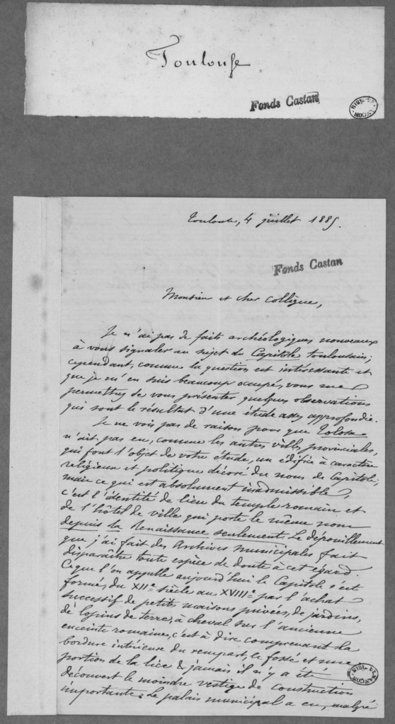 Toulouse
Fonds Castan
Toulouse, 4 juillet 1885.
Fonds Castan
Monsieur et cher collègue,
Je n'ai pas de faits archéologiques nouveaux
à vous signaler au sujet du Capitole toulousain;
cependant, comme la question est intéressante et
que je m'en suis beaucoup occupé, vous me
permettrez de vous présenter quelques observations
qui sont le résultat d'une étude assez approfondie.
Je ne vois pas de raison pour que Tolosa
n'ait pas eu, comme les autres villes provinciales,
qui font l'objet de votre étude, un édifice à caractère
religieux et politique décoré du nom de Capitole,
mais ce qui est absolument inadmissible
c'est l'identité de lieu du temple romain et
de l'hôtel de ville qui porte le même nom
depuis la Renaissance seulement. Le dépouillement
que j'ai fait des Archives municipales fait
disparaître toute espèce de doute à cet égard.
Ce que l'on appelle aujourd'hui le Capitole s'est
formé, du XIIe siècle au XVIIIe par l'achat
successif de petites maisons privées, de jardins,
de lopins de terre, à cheval sur l'ancienne
enceinte romaine, c'est à dire comprenant la
bordure intérieure du rempart, le fossé et une
portion de la lice & jamais il n'y a été
découvert le moindre vestige de construction
importante. Le palais municipal a eu, malgré